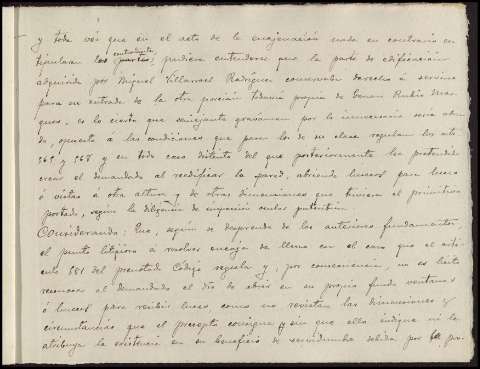 y toda vez que en el acto de la enajenación nada en contrario es-
contratantes
tipularan las partes, pudiera entenderse que la parte de edificación
adquirida por Miguel Villarrael Rodríguez conservaba derecho á servirse
para su entrada de la otra porción todavía propia de Genaro Rubio Mar-
ques, es lo cierto que semejante gravamen por lo innecesario seria
do, opuesto á las condiciones que para los de su clase regulan los arts
564 y 568 y en todo caso distinto del que posteriormente ha pretendido
crear el demandado al reedificar la pared, abriendo huecos para luces
ó vistas á otra altura y de otras dimensiones que tuviera el primitivo
portado, según la diligencia de inspección ocular
Considerando: Que, según se desprende de los anteriores fundamentos,
el punto litigioso á resolver encaja de lleno en el caso que el artí-
culo 581 del precitado Código regula y, por consecuencia, no es lícito
reconocer al demandado el dro de abrir en su propio fundo ventanas
ó huecos para recibir luces como no revistan las dimensiones y
circunstancias que el precepto consigna y sin que ello indique ni le
atribuya la existencia en su beneficio de servidumbre debida por